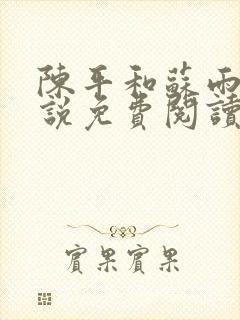 陳平和蘇雨
說免費閱讀
實果實果